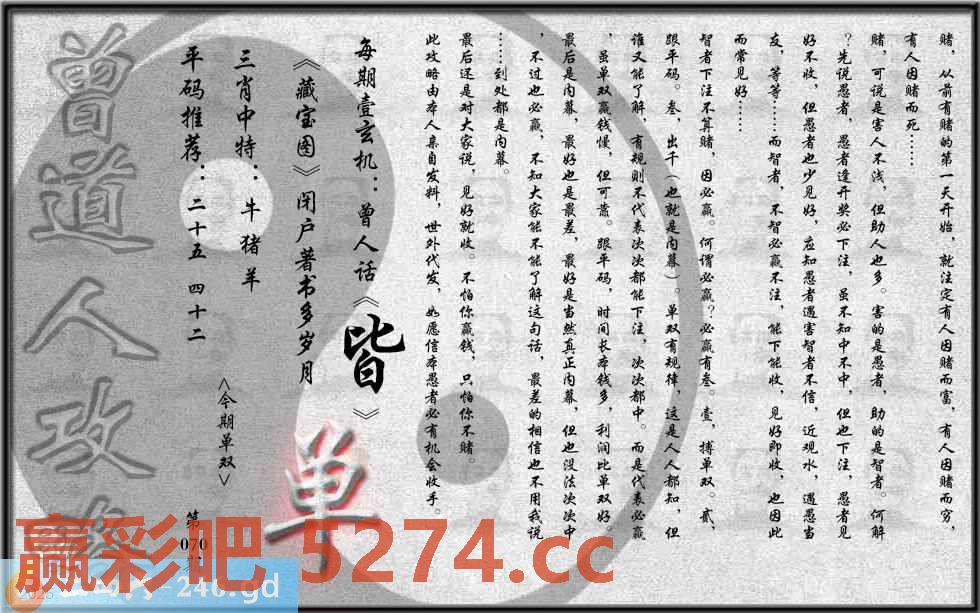 赌，从前有赌的第一天开始，就注定有人因赌而富，有人因赌而穷，
有人因赌而死……
赌，可说是害人不浅，但助人也多。害的是愚者，助的是智者。何解
？先说愚者，愚者逢开奖必下注，虽不知中不中，但也下注，愚者见
好不收，但愚者也少见好，应知愚者遇害智者不信，近观水，遇愚当
友，等等……而智者，不智必赢不注，能下能收，见好即收，也因此
而常见好……
智者下注不算赌，因必赢。何谓必赢？必赢有叁。壹，搏单双。贰，
跟平码。叁，出千（也就是内幕）。单双有规律，这是人人都知，但
谁又能了解，有规则不代表次次都能下注，次次都中。而是代表必赢
，虽单双赢钱慢，但可靠。跟平码，时间长本钱多，利润比单双好。
最后是内幕，最好也是最差，最好是当然真正内幕，但也没法次次中
，不过也必赢，不知大家能不能了解这句话，最差的相信也不用我说
……到处都是内幕。
最后还是对大家说，见好就收。不怕你赢钱，只怕你不赌。
此攻略由本人亲自发料，世外代发，如愿信本愚者必有机会收手。
每期壹玄机：曾人话《皆》
《藏宝图》闭户著书多岁月
单
三肖中特：牛猪羊
<今期单双>
平码推荐：二十五 四十二
第070
曾道人攻略
赢彩吧 5274.cc
246.gd
2023